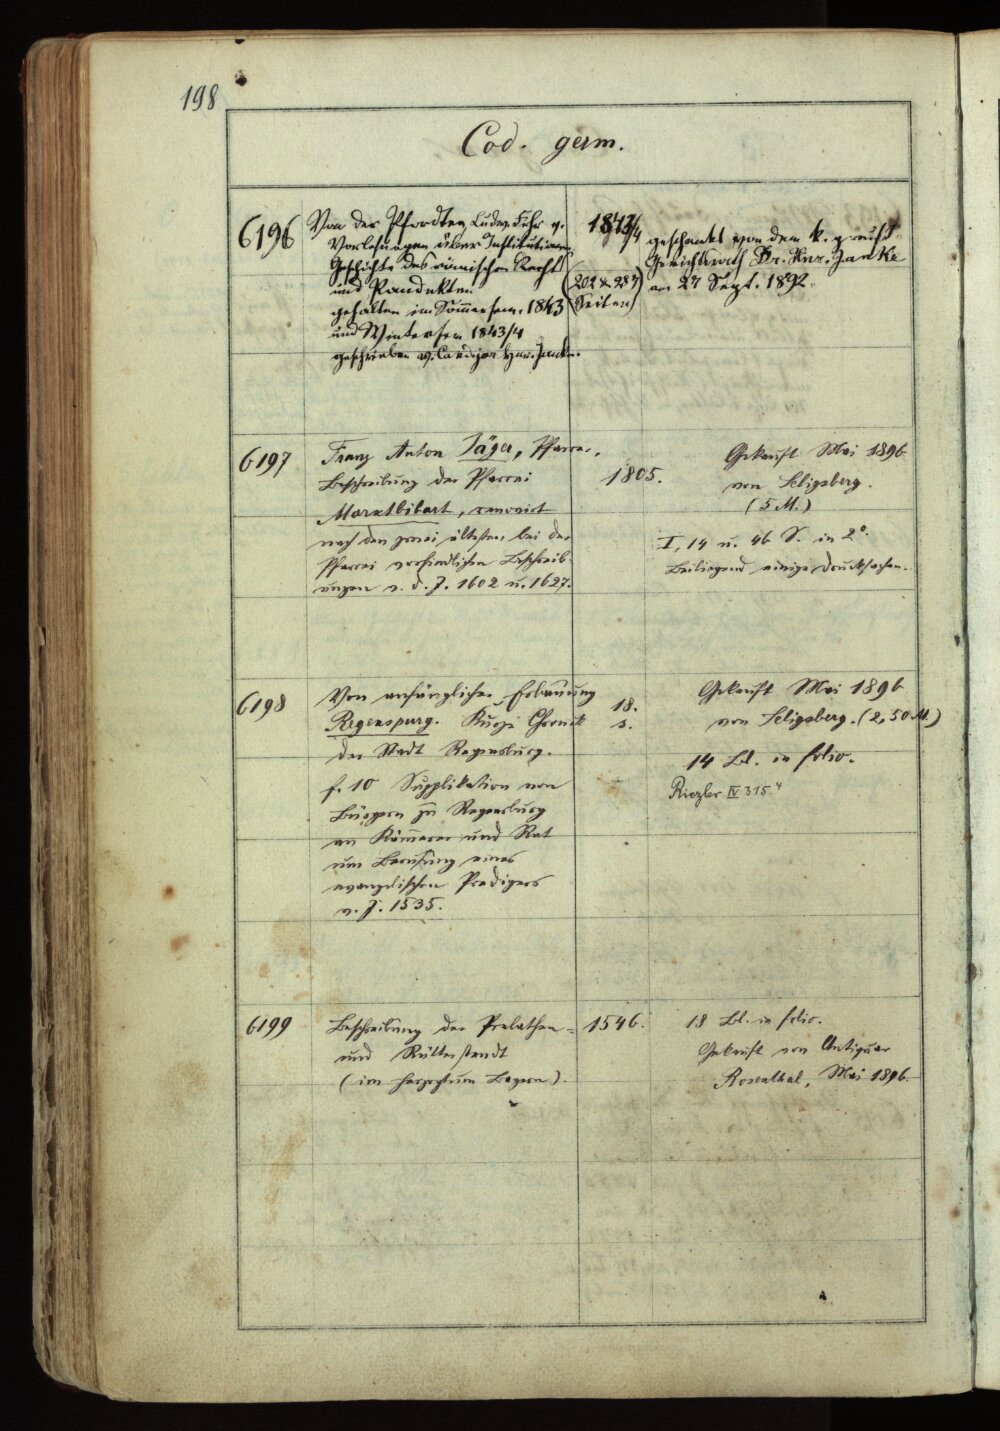 198
Cod. germ.
6196
Von der Pfordten, Ludw. Frhr v.
Vorlesungen über Institutionen
Geschichte des römischen Rechts
und Pandekten
gehalten im Sommersem. 1843
und Wintersem 1843/4
geschrieben v. Hnr. Janke.
1843/4
(202 & 287
Seiten)
geschenkt von dem k. preuß.
Gerichtsrath Dr. Hnr. Janke
am 27 Sept. 1892.
6197
Franz Anton Jäger, Pfarrer,
Beschreibung der Pfarrei
Marktbibart, renovirt
nach den zwei ältesten bei der
Pfarrei vorfindlichen Beschreib-
ungen v. d. J. 1602 u. 1627.
1805.
Gekauft Mai 1896
von Seligsberg.
(5 M.)
I, 14 u. 46 S. in 2º.
Beiliegend einige Drucksachen.
6198
Von anfänglicher Erbauung
Regenspurg. Kurze Chronik
der Stadt Regensburg.
f. 10 Supplikation von
Bürgern zu Regensburg
an Kämmerer und Rat
um Berufung eines
evangelischen Predigers
v. J. 1535.
18.
s.
Gekauft Mai 1896
von Seligsberg. (2,50 M.)
14 Bl. in folio.
Riezler IV 315
6199
Beschreibung der Prelathen-
und Rütterstandt
(im Herzogtum Bayern).
1546.
18 Bl. in folio.
Gekauft von Antiquar
Rosenthal, Mai 1896.